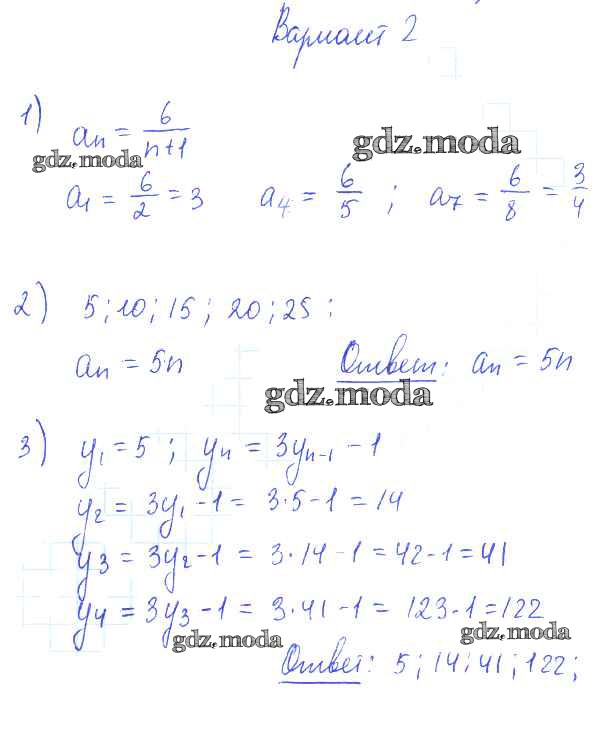 Вариант 2
1) aₙ = 6/(n+1)
gdz.moda
gdz.moda
a₁ = 6/2 = 3 a₄ = 6/5 ; a₇ = 6/8 = 3/4
2) 5; 10; 15; 20; 25 :
aₙ = 5·n Ответ: aₙ = 5n
gdz.moda
3) y₁ = 5 ; yₙ = 3yₙ₋₁ - 1
y₂ = 3y₁ - 1 = 3·5 - 1 = 14
y₃ = 3y₂ - 1 = 3·14 - 1 = 42 - 1 = 41
y₄ = 3y₃ - 1 = 3·41 - 1 = 123 - 1 = 122
gdz.moda
gdz.moda
Ответ: 5; 14; 41; 122;